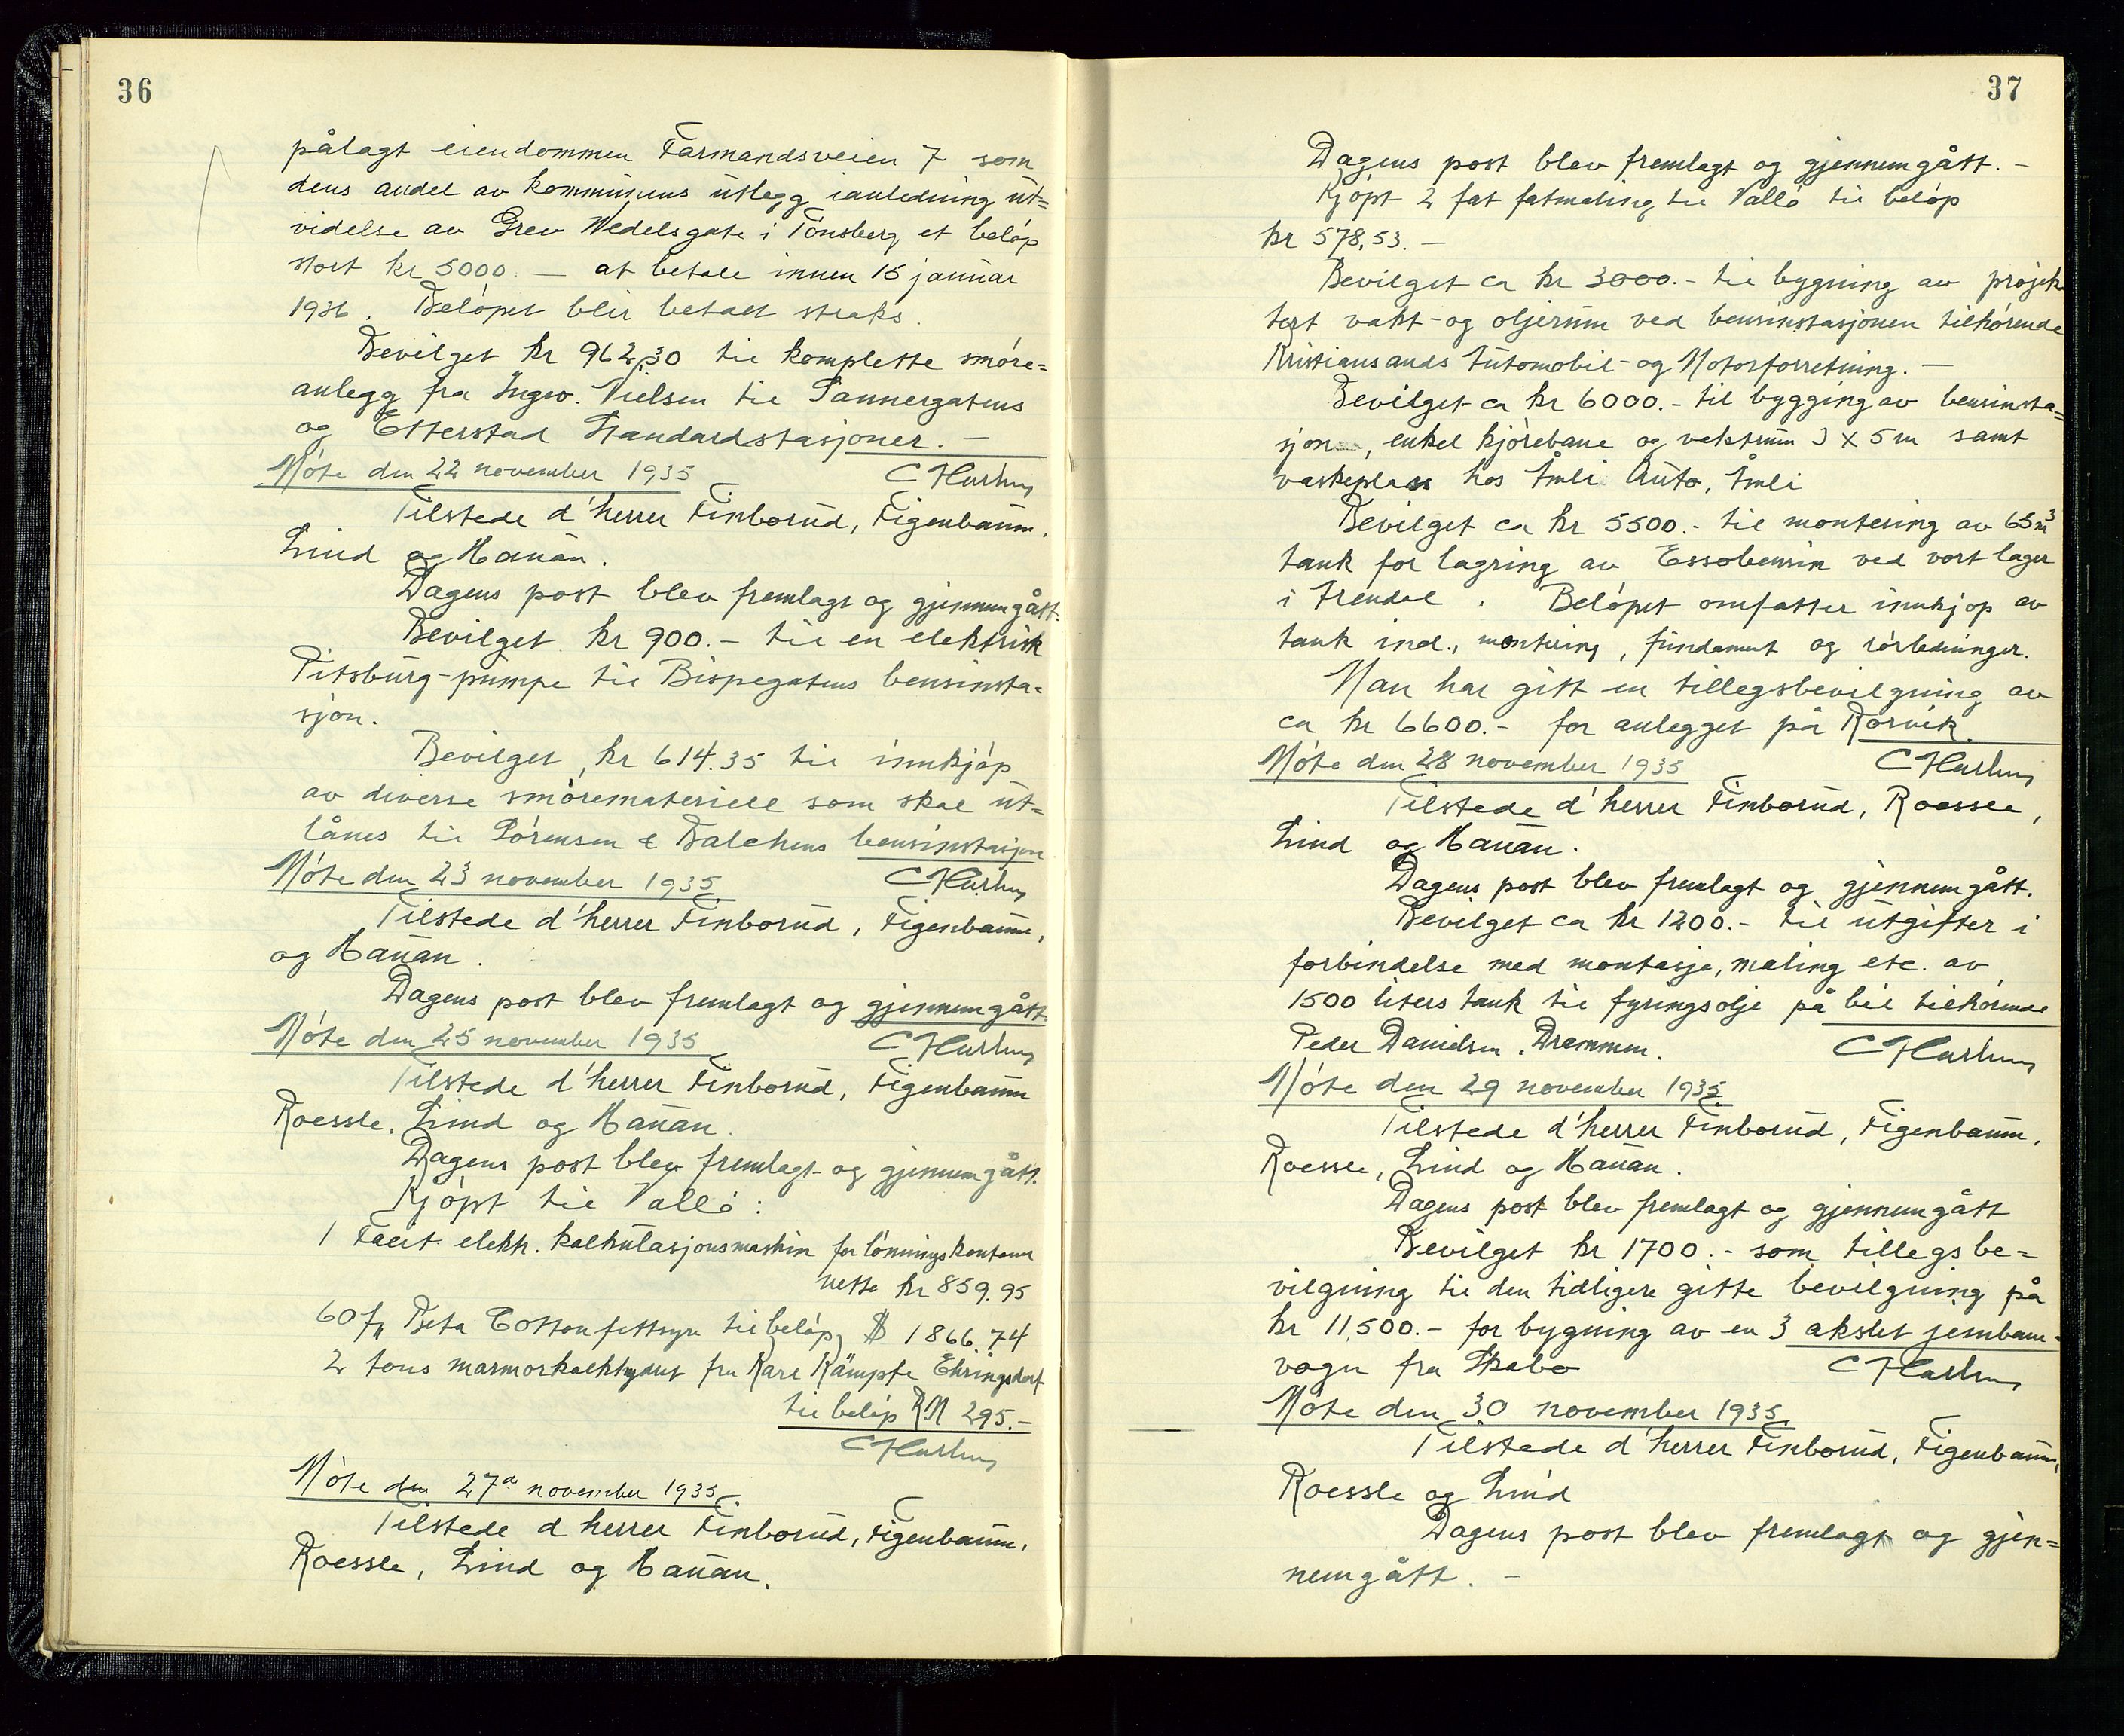 36
pålagt eiendommen Farmandsveien 7 som
dens andel av kommunens utlegg ianledning ut=
videlse av Grev Wedelsgate i Tönsberg et belöp
stort kr 5000.— at betale innen 15 januar
1936. Belöpet blir betalt straks.
Bevilget kr 962,30 til komplette smöre=
anlegg fra Ingw. Nielsen til Sannergatens
og Etterstad Standardstasjoner.—
Möte den 22 november 1935
Tilstede d'herrer Finborud, Figenbaum,
Lind og Hauan.
Dagens post blev fremlagt og gjennemgått.
Bevilget kr 900.— til en elektrisk
Pitsburg-pumpe til Bispegatens bensinsta=
sjon.
Bevilget, kr 614.35 til innkjöp
av diverse smöremateriell som skal ut=
lånes til Sörensen & Balchens bensinstasjon
Möte den 23 november 1935
Tilstede d'herrer Finborud, Figenbaum,
og Hauan.
Dagens post blev fremlagt og gjennemgått.
Möte den 25 november 1935
Tilstede d'herrer Finborud, Figenbaum
Roessle, Lind og Hauan.
Dagens post blev fremlagt og gjennemgått.
Kjöpt til Vallö:
1 Facit elektr. kalkulasjonsmaskin for lönningskontoret
netto kr 859.95
60 f Beta Cottonfettsyre til belöp $ 1866.74
2 tons marmorkalkhydrat fra Karl Kämpfe Ehringsdorf
til belöp RM 295.—
Möte den 27de november 1935.
Tilstede d herrer Finborud, Figenbaum,
Roessle, Lind og Hauan.
37
Dagens post blev fremlagt og gjennemgått.—
Kjöpt 2 fat fatmaling til Vallö til belöp
kr 578,53.—
Bevilget ca kr 3000.- til bygning av projek
tert vakt- og oljerum ved bensinstasjonen tilhörende
Kristiansands Automobil- og Motorforretning.—
Bevilget ca kr 6000.- til bygging av bensinsta=
sjon, enkel kjörebane og vaktrum 3 x 5 m samt
vaskeplass hos Åmli Auto, Åmli
Bevilget ca kr 5500.- til montering av 65 m³
tank for lagring av Essobensin ved vort lager
i Arendal. Belöpet omfatter innkjöp av
tank incl., montering, fundament og rörledninger.
Man har gitt en tillegsbevilgning av
ca kr 6600.- for anlegget på Rörvik.
Möte den 28 november 1935
Tilstede d'herrer Finborud, Roessle,
Lind og Hauan.
Dagens post blev fremlagt og gjennemgått.
Bevilget ca kr 1200.- til utgifter i
forbindelse med montasje, maling etc. av
1500 liters tank til fyringsolje på bil tilhörende
Peder Danielsen, Drammen.
Möte den 29 november 1935.
Tilstede d'herrer Finborud, Figenbaum,
Roessle, Lind og Hauan.
Dagens post blev fremlagt og gjennemgått
Bevilget kr 1700.- som tillegsbe=
vilgning til den tidligere gitte bevilgning på
kr 11,500.- for bygning av en 3 akslet jernbane=
vogn fra Skabo
Möte den 30 november 1935
Tilstede d'herrer Finborud, Figenbaum,
Roessle og Lind
Dagens post blev fremlagt og gjen=
nemgått.—